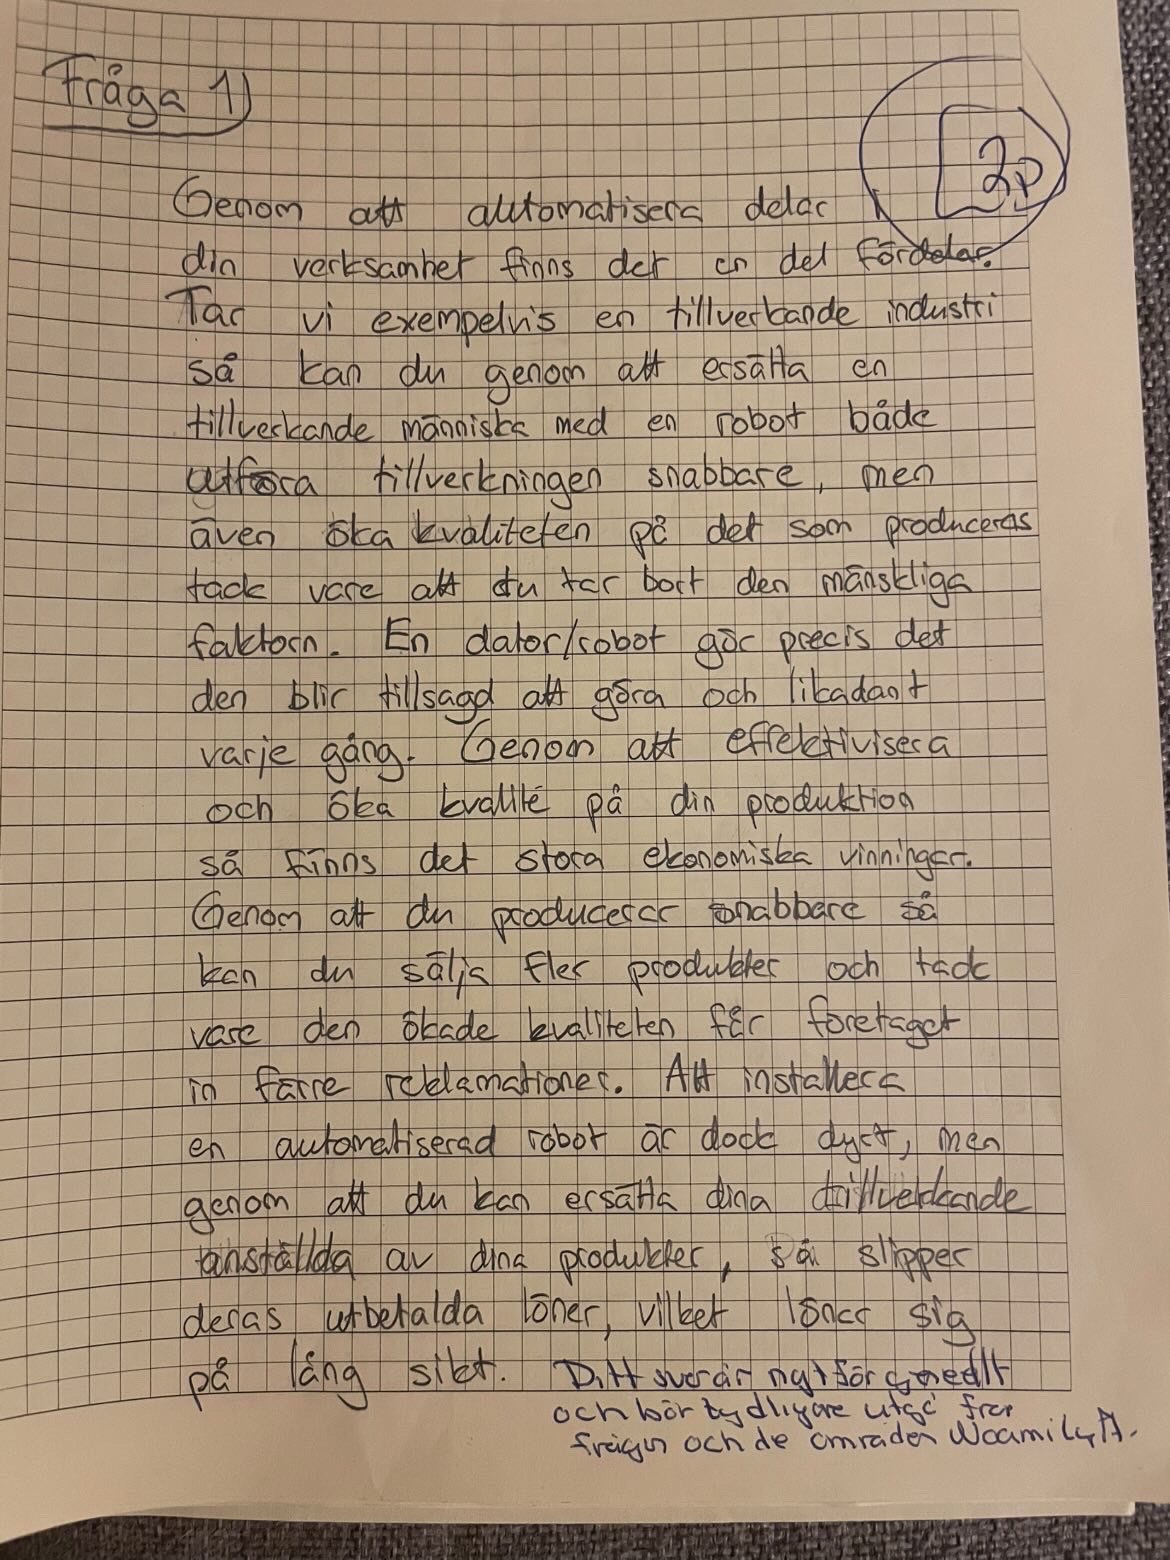 Fråga 1)
2p
Genom att automatisera delar i
din verksamhet finns det en del fördelar.
Tar vi exempelvis en tillverkande industri
så kan du genom att ersätta en
tillverkande människa med en robot både
utföra tillverkningen snabbare, men
även öka kvaliteten på det som produceras
tack vare att du tar bort den mänskliga
faktorn. En dator/robot gör precis det
den blir tillsagd att göra och likadant
varje gång. Genom att effektivisera
och öka kvalité på din produktion
så finns det stora ekonomiska vinningar.
Genom att du producerar snabbare så
kan du sälja fler produkter och tack
vare den ökade kvaliteten får företaget
in färre reklamationer. Att installera
en automatiserad robot är dock dyrt, men
genom att du kan ersätta dina tillverkande
anställda av dina produkter, så slipper
deras utbetalda löner, vilket lönar sig
på lång sikt. Ditt svar är något för generellt
och bör tydligare utgå från
frågan och de områden